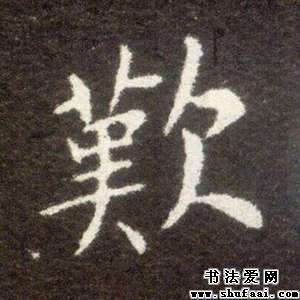 歎
书法爱网
www.shufaai.com